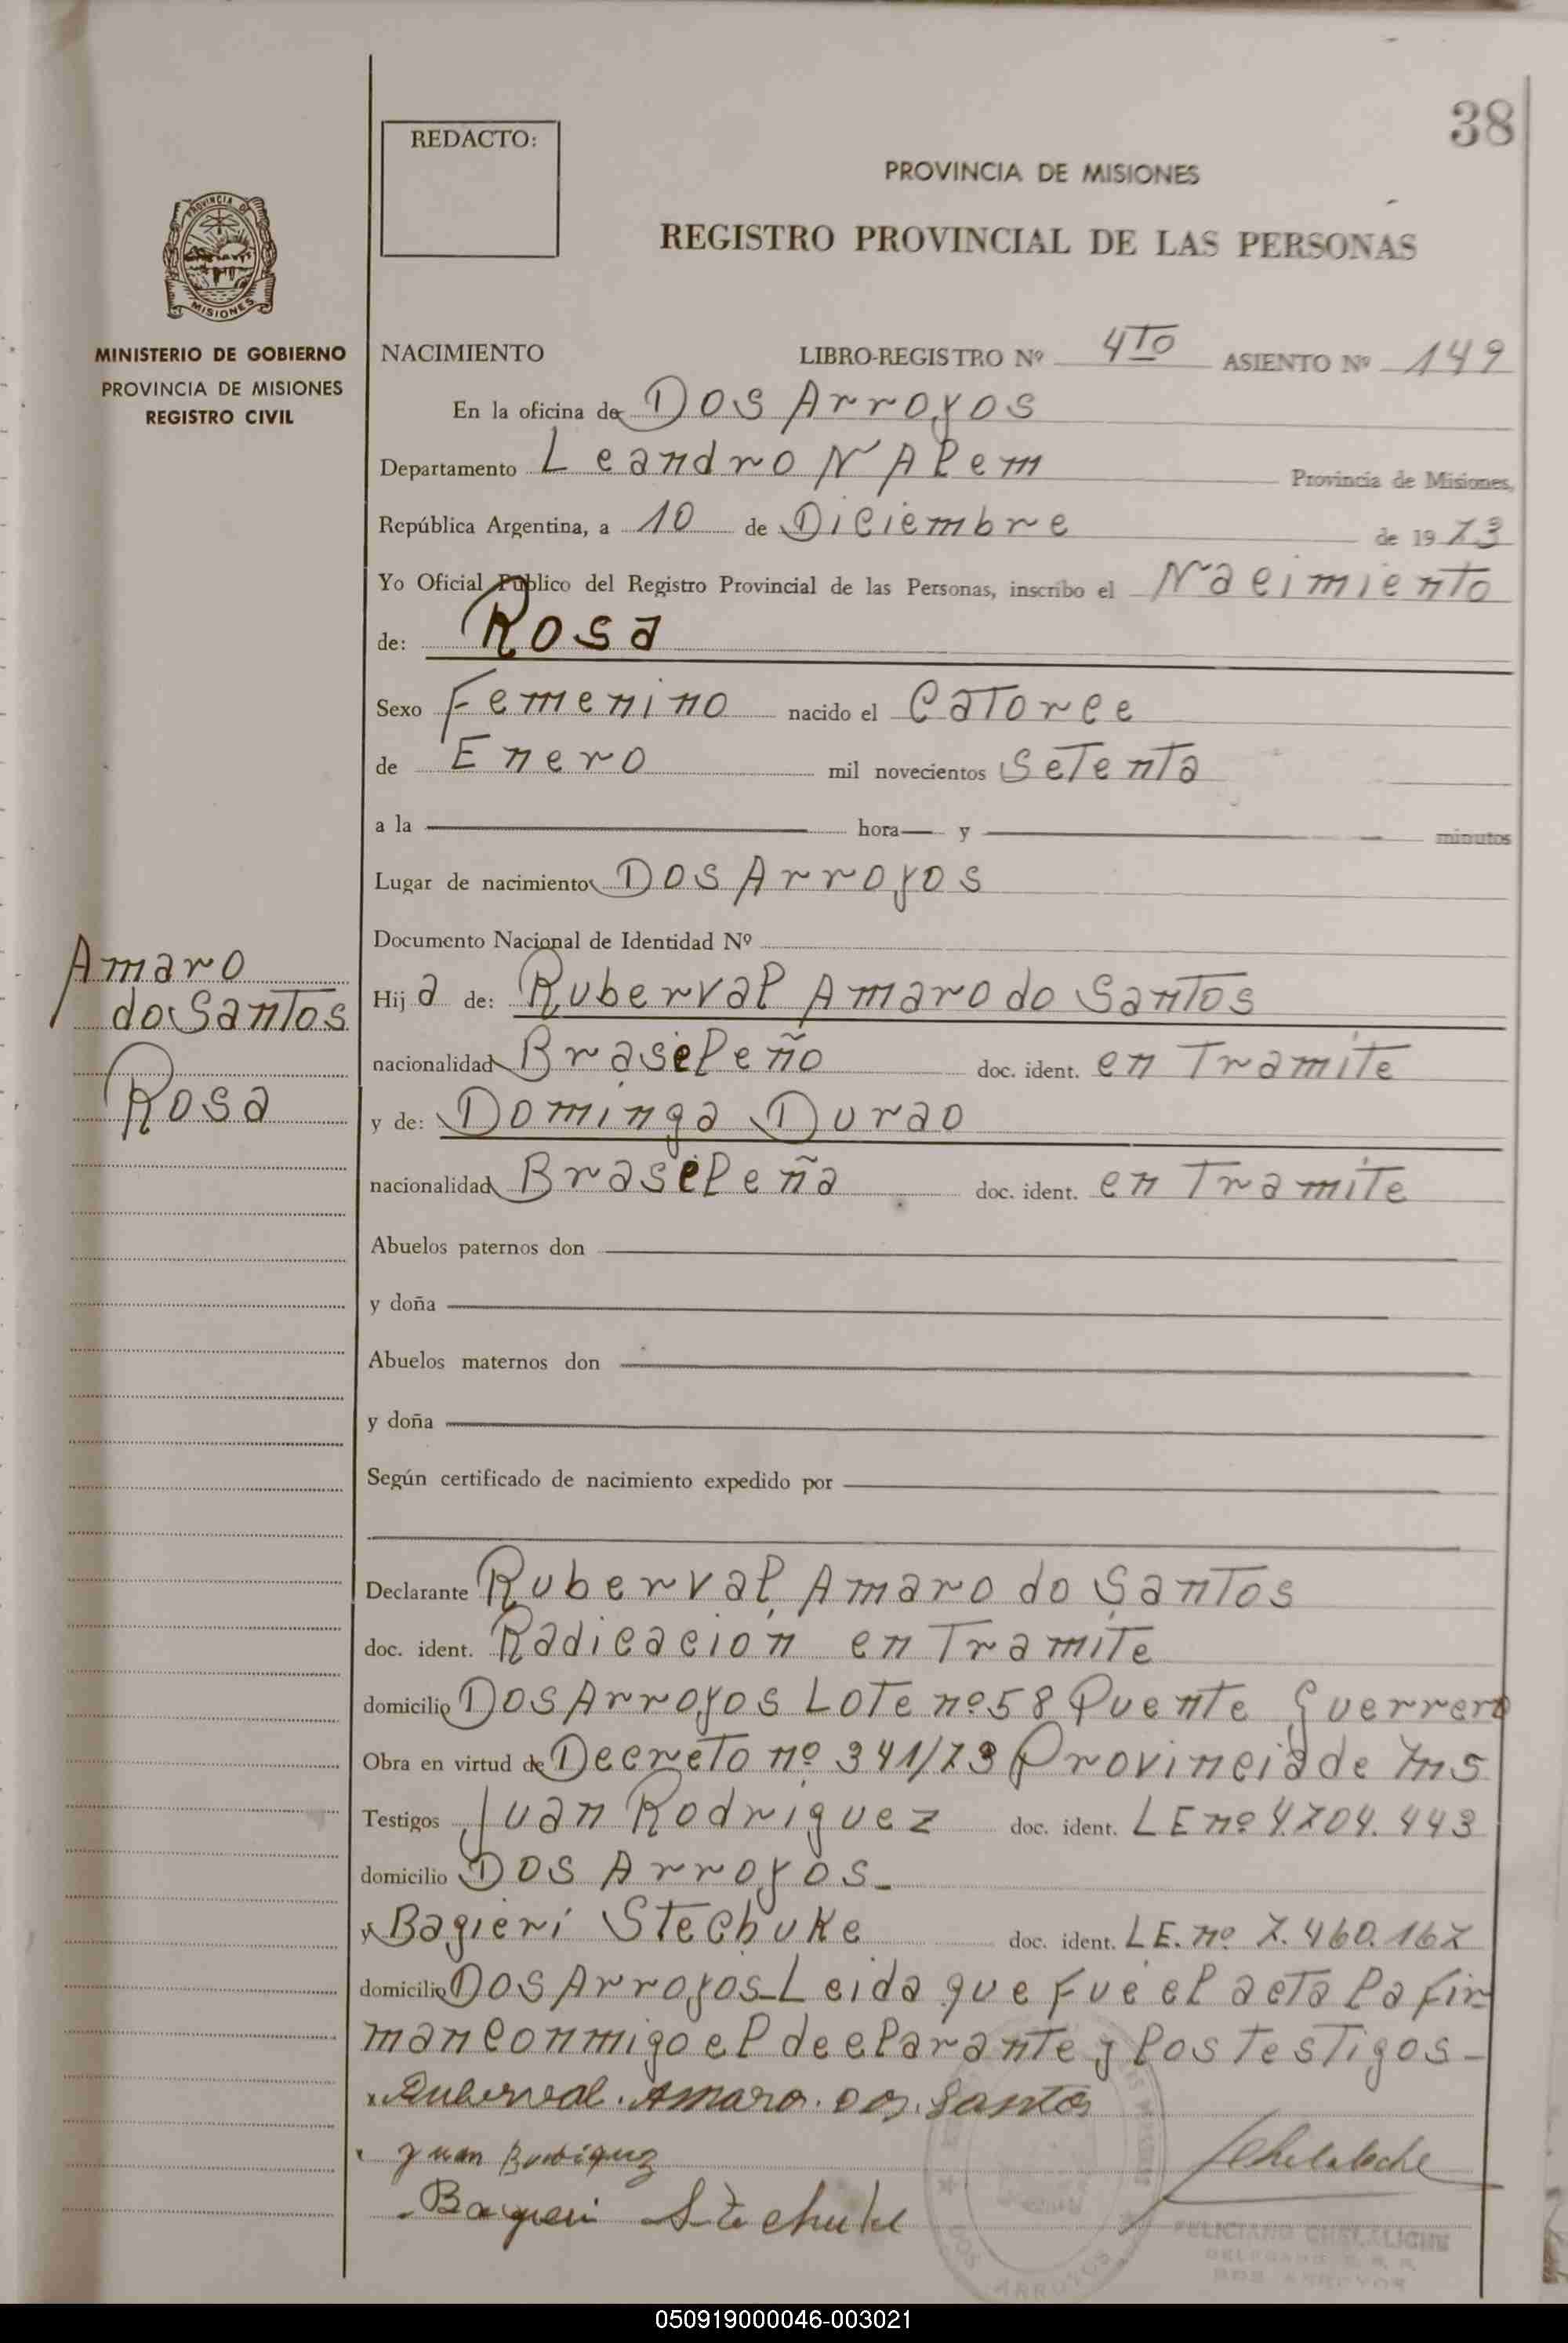 38
REDACTO:
PROVINCIA DE MISIONES
REGISTRO PROVINCIAL DE LAS PERSONAS
PROVINCIA DE
MISIONES
MINISTERIO DE GOBIERNO
PROVINCIA DE MISIONES
REGISTRO CIVIL
NACIMIENTO LIBRO-REGISTRO Nº 4TO ASIENTO Nº 149
En la oficina de Dos Arroyos
Departamento Leandro N Alem Provincia de Misiones,
República Argentina, a 10 de Diciembre de 1973
Yo Oficial Público del Registro Provincial de las Personas, inscribo el Nacimiento
de: Rosa
Sexo Femenino nacido el Catorce
de Enero mil novecientos Setenta
a la hora y minutos
Lugar de nacimiento Dos Arroyos
Documento Nacional de Identidad Nº
Amaro
do Santos
Rosa
Hija de: Ruberval Amaro do Santos
nacionalidad Braseleño doc. ident. en Tramite
y de: Dominga Durao
nacionalidad Braseleña doc. ident. en Tramite
Abuelos paternos don
y doña
Abuelos maternos don
y doña
Según certificado de nacimiento expedido por
Declarante Ruberval Amaro do Santos
doc. ident. Radicacion en Tramite
domicilio Dos Arroyos Lote nº 58 Puente Guerrero
Obra en virtud de Decreto nº 341/73 Provincia de Mns
Testigos Juan Rodriguez doc. ident. LE nº 4.704.443
domicilio Dos Arroyos.-
y Bagieri Stechuke doc. ident. LE. nº 7.460.167
domicilio Dos Arroyos-Leida que fue el acta la fir
man conmigo el declarante y los testigos-
Ruberval. Amaro. dos. Santos
Juan Rodriguez
Bagieri Stechuke
Chelaliche
FELICIANO CHELALICHE
DELEGADO
DOS ARROYOS
DOS ARROYOS
050919000046-003021